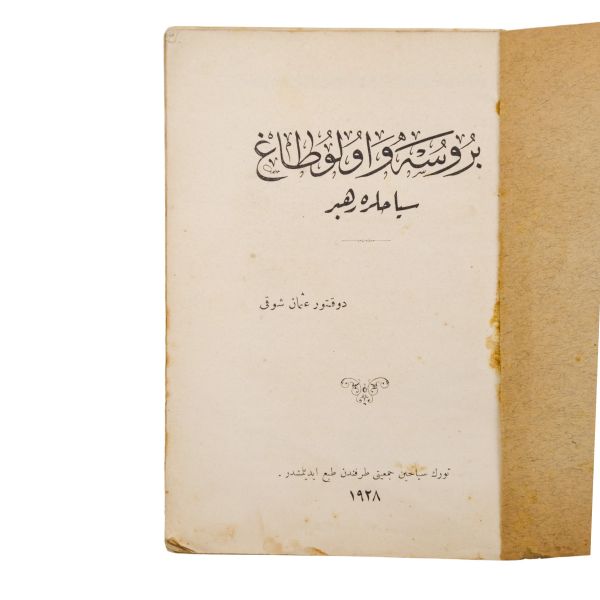 بُرُوسَه وَ اوُلوُطَاغْ
سیاحلره رهبر
دوقتور عثمان شوقی
تورك سیاحین جمعیتی طرفندن طبع ایدیلمشدر .
١٩٢٨